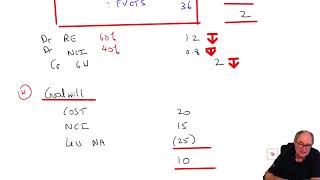 : FVCTS 36
2
Dr RE 60% 1.2
Dr NCI 40% 0.8
Cr GW 2
Goodwill
COST 20
NCI 15
Less NA (25)
10